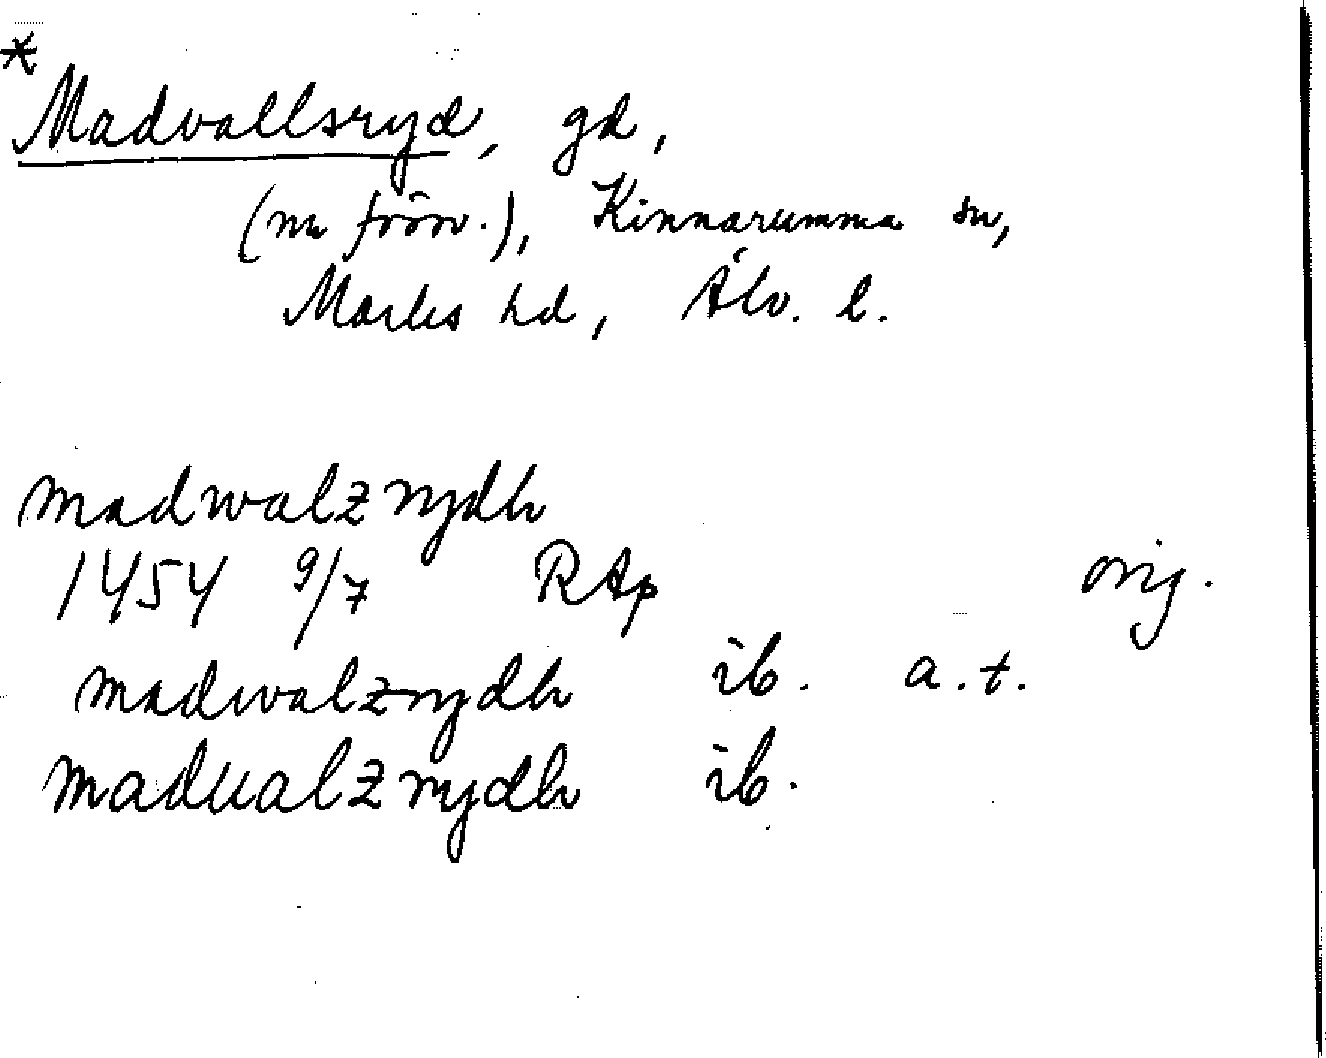 *
Madvallsryd, gd,
(nu försv.), Kinnarumma sn,
Marks hd, Älv. l.
madwalz rydh
1454 9/7 RAp orig.
madwalzrydh ib. a.t.
madualz rydh ib.